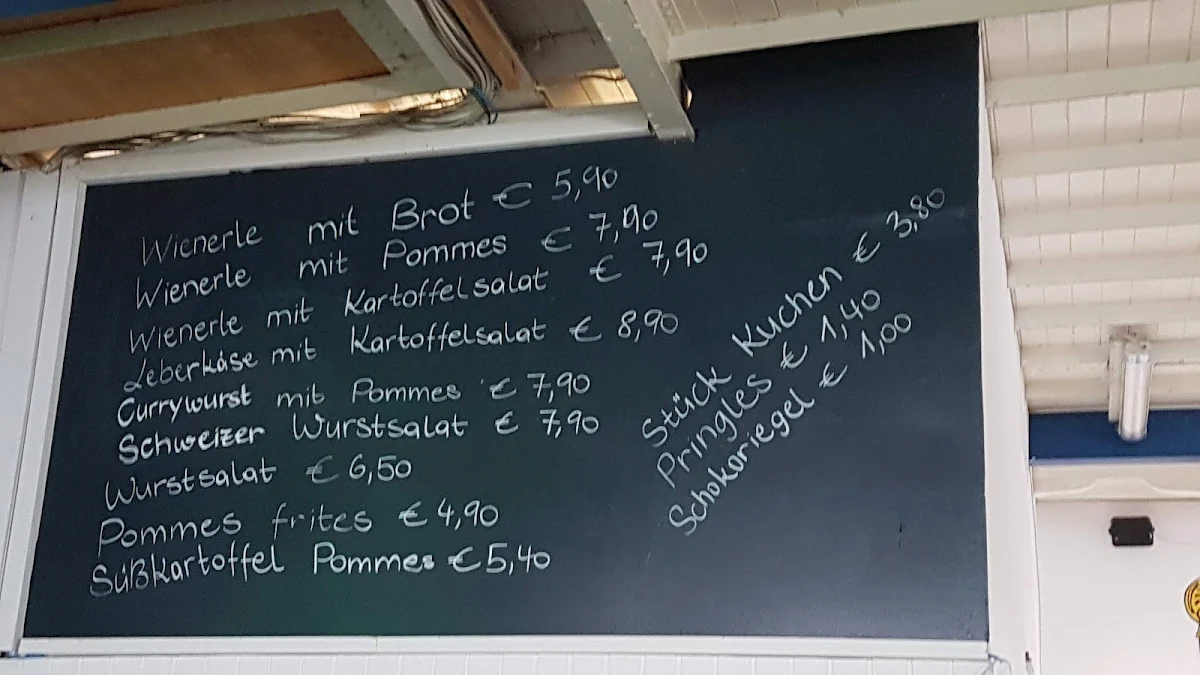 Wienerle mit Brot € 5,90
Wienerle mit Pommes € 7,90
Wienerle mit Kartoffelsalat € 7,90
Leberkäse mit Kartoffelsalat € 8,90
Currywurst mit Pommes € 7,90
Schweizer Wurstsalat € 7,90
Wurstsalat € 6,50
Pommes frites € 4,90
Süßkartoffel Pommes € 5,40
Stück Kuchen € 3,80
Pringles € 1,40
Schokoriegel € 1,00